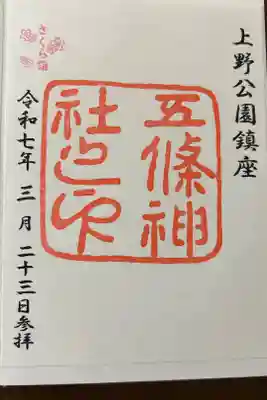 上野公園鎮座
五條神
社之印
さくら詣
令和七年 三 月 二十三日参拝